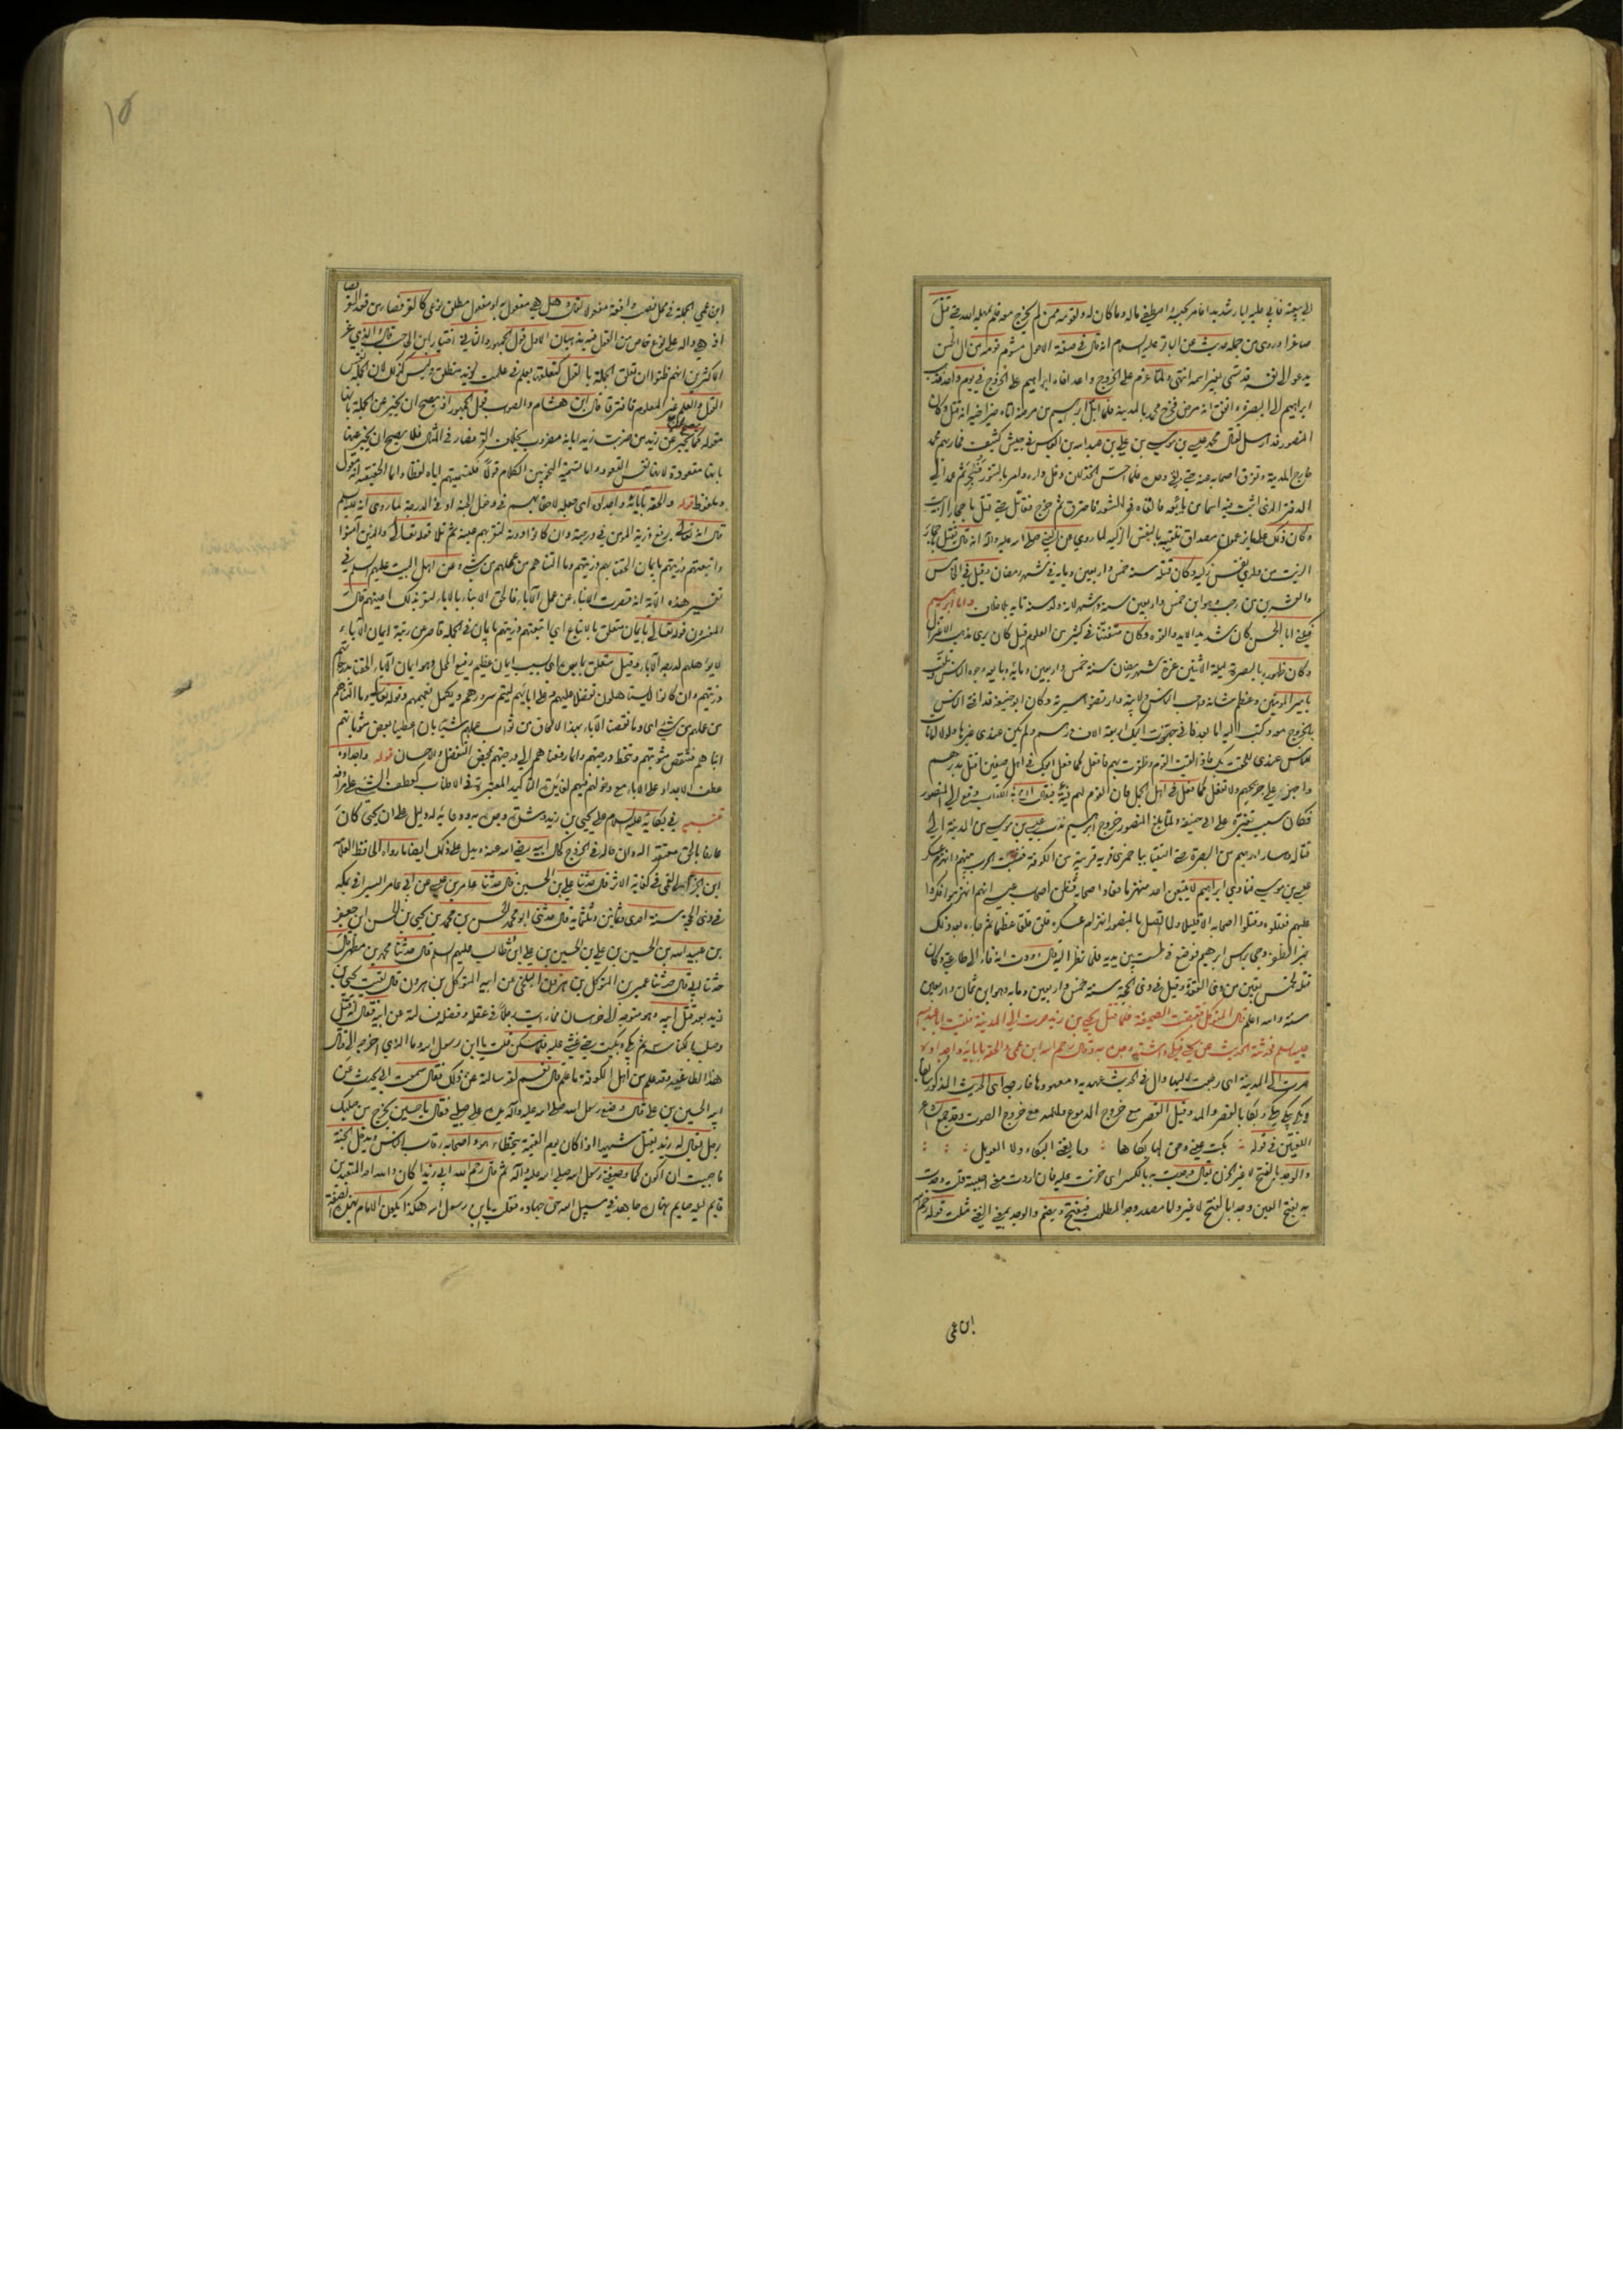 الى بيعته فابى عليه ابا شديدا فامر بحبسه واصطفى ماله وما كان له ولقومه ممن لم يخرج معه فلم يمهله الله حتى قتل
صابرا وروى من جملة حديث عن الباقر عليه السلام انه قال في صفة الاحول مشوم قومه من آل الحسن
يدعو الى نفسه قد تسمى بغير اسمه انتهى ولما عزم على الخروج واعد اخاه ابراهيم على الخروج في يوم واحد فذهب
ابراهيم الى البصرة واتفق انه مرض فخرج محمد بالمدينة فلما ابل ابراهيم من مرضه اتاه خبر اخيه انه قتل وكان
المنصور قد ارسل لقتال محمد عيسى بن موسى بن علي بن عبد الله بن العباس في جيش كثيف فحاربهم محمد
خارج المدينة وتفرق اصحابه عنه حتى بقي وحده فلما احس الخذلان دخل داره وامر بالتنور فسجر ثم عمد الى
الدفتر الذي اثبت فيه اسماء من بايعه فالقاه في التنور فاحترق ثم خرج فقاتل حتى قتل باحجار الزيت
وكان ذلك على ما يزعمون مصداق تلقيبه بالنفس الزكية لما روي عن النبي صلى الله عليه وآله انه قال تقتل باحجار
الزيت من ولدي نفس زكية وكان قتله سنة خمس واربعين ومايه في شهر رمضان وقيل في الخامس
والعشرين من رجب وهو ابن خمس واربعين سنة وشهر لانه ولد سنة مايه بلا خلاف واما ابراهيم
فيكنى ابا الحسن كان شديد الايد والقوة وكان متفننا في كثير من العلوم قيل كان يرى مذهب الاعتزال
وكان ظهوره بالبصرة ليلة الاثنين غرة شهر رمضان سنة خمس واربعين ومايه وبايعه وجوه الناس وتلقب
بامير المومنين وعظم شانه واحب الناس ولايته وارتضوا سيرته وكان ابو حنيفة قد افتى الناس
بالخروج معه وكتب اليه اما بعد فاني جهزت اليك اربعة الاف درهم ولم يكن عندي غيرها ولولا امانات
للناس عندي للحقت بك فاذا لقيت القوم وظفرت بهم فافعل كما فعل ابوك في اهل صفين اقتل مدبرهم
واجهز على جريحهم ولا تفعل كما فعل في اهل الجمل فان القوم لهم فئة فيقال ان هذا الكتاب وقع الى المنصور
فكان سبب تغيره على ابي حنيفة ولما بلغ المنصور خروج ابراهيم ندب عيسى بن موسى من المدينة الى
قتاله وسار ابراهيم من البصرة حتى التقيا بباخمرى قرية قريبة من الكوفة فنشبت الحرب بينهم وانهزم عسكر
عيسى بن موسى فنادى ابراهيم لا يتبعن احد منهزما فعاد اصحابه فظن اصحاب عيسى انهم انهزموا فكروا
عليهم فقتلوه وقتلوا اصحابه الا قليلا ولما اتصل بالمنصور انهزام عسكره قلق قلقا عظيما ثم جاءه بعد ذلك
خبر الظفر وجي براس ابراهيم فوضع في طست بين يديه فلما نظر اليه قال وددت انه فاء الى طاعتي وكان
قتله لخمس بقين من ذي القعدة وقيل في ذي الحجة سنة خمس واربعين ومايه وهو ابن ثمان واربعين
سنة والله اعلم قال المتوكل فقبضت الصحيفة فلما قتل يحيى بن زيد صرت الى المدينة فلقيت ابا عبد الله
عليه السلم فحدثته الحديث عن يحيى فبكى واشتد وجده به وقال رحم الله ابن عمي والحقه بآبائه واجداده
صرت الى المدينة اي رجعت اليها وال في الحديث عهديه ومعهودها خارجي اي الحديث المذكور سابقا
وبكى يبكي بكى وبكاء بالقصر والمد وقيل القصر مع خروج الدموع والمد مع خروج الصوت وقد جمع الشاعر
اللغتين في قوله بكت عيني وحق لها بكاها وما يغني البكاء ولا العويل
والوجد بالفتح لا غير الحزن يقال وجدت به بالكسر اي حزنت عليه فان اردت معنى احببته قلت وجدت
به بفتح العين وجدا بالفتح لا غير واما مصدر وجد المطلوب فيفتح ويضم والوجد بمعنى الغنى مثلث قوله رحم الله
ابن عمي
١٥
ابن عمي الجملة في محل نصب واقعة مفعولا لقال وهل هي مفعول به او مفعول مطلق نوعي كالقرفصاء من قعد القرفصاء
اذ هي دالة على نوع خاص من القول فيه مذهبان الاول قول الجمهور والثاني اختيار ابن الحاجب قال والذي غر
الاكثرين انهم ظنوا ان تعلق الجملة بالقول كتعلقها بعلم في علمت لزيد منطلق وليس كذلك لان الجملة نفس
القول والعلم غير المعلوم فافترقا قال ابن هشام والصواب قول الجمهور اذ يصح ان يخبر عن الجملة بانها
مقولة كما يخبر عن زيد من ضربت زيدا بانه مضروب بخلاف القرفصاء في المثال فلا يصح ان يخبر عنها
بانها مقعودة لانها نفس القعود واما تسمية النحويين الكلام قولا فكتسميتهم اياه لفظا وانما الحقيقة انه مقول
وملفوظ قوله والحقه بآبائه واجداده اي جعله لاحقا بهم في دخول الجنة او في الدرجة لما روى انه عليه السلم
قال ان الله تعالى يرفع ذرية المؤمن في درجته وان كانوا دونه لتقر بهم عينه ثم تلا قوله تعالى والذين آمنوا
واتبعتهم ذريتهم بايمان الحقنا بهم ذريتهم وما التناهم من عملهم من شيء وعن اهل البيت عليهم السلم في
تفسير هذه الآية انه قصرت الابناء عن عمل الآباء فالحق الابناء بالاباء لتقر بذلك اعينهم قال
المفسرون قوله تعالى بايمان متعلق بالاتباع اي اتبعتهم ذريتهم بايمان في الجملة قاصر عن رتبة ايمان الآباء
لا يؤهلهم لدرجة الآباء وقيل متعلق بما بعده اي بسبب ايمان عظيم رفيع المحل وهو ايمان الآباء الحقنا بدرجاتهم
ذريتهم وان كانوا لا يستاهلون تفضلا عليهم وعلى ابائهم ليتم سرورهم ويكمل نعيمهم وقوله تعالى وما التناهم
من عملهم من شيء اي وما نقصنا الآباء بهذا الالحاق من ثواب عملهم شيئا بان اعطينا بعض مثوباتهم
ابناءهم فتنقص مثوبتهم وتنحط درجتهم وانما رفعناهم الى درجتهم بمحض التفضل والاحسان قوله واجداده
عطف الاجداد على الاباء مع دخولهم فيهم لفائدة التاكيد المعتبر في الاطناب كعطف الشيء على مرادفه
تنبيه في بكائه عليه السلام على يحيى بن زيد وشدة وجده به ودعائه له دليل على ان يحيى كان
عارفا بالحق معتقدا له وان حاله في الخروج كحال ابيه رضي الله عنه ويدل على ذلك ايضا ما رواه الحافظ العلامة
ابن الخزاز القمي في كفاية الاثر قال حدثنا علي بن الحسين قال حدثنا عامر بن عيسى عن ابي عامر السيرافي بمكة
في ذي الحجة سنة احدى وثمانين وثلثمايه قال حدثني ابو محمد الحسن بن محمد بن يحيى بن الحسن ابن جعفر
بن عبيد الله بن الحسين بن علي بن الحسين بن علي ابن ابي طالب عليهم السلم قال حدثنا محمد بن مطهر قال
حدثنا ابي قال حدثنا عمير بن المتوكل بن هرون البلخي عن ابيه المتوكل بن هرون قال لقيت يحيى بن
زيد بعد قتل ابيه وهو متوجه الى خراسان فما رايت رجلا في عقله وفضله فسالته عن ابيه فقال انه قتل
وصلب بالكناسة ثم بكى وبكيت حتى غشي عليه فلما سكن قلت يا ابن رسول الله وما الذي اخرجه الى قتال
هذا الطاغية وقد علم من اهل الكوفة ما علم قال نعم لقد سالته عن ذلك فقال سمعت ابي يحدث عن
ابيه الحسين بن علي قال وضع رسول الله صلى الله عليه وآله يده على صلبي فقال يا حسين يخرج من صلبك
رجل يقال له زيد يقتل شهيدا اذا كان يوم القيمة يتخطا هو واصحابه رقاب الناس ويدخل الجنة
فاحببت ان اكون كما وصفني رسول الله صلى الله عليه وآله ثم قال رحم الله ابي زيدا كان والله احد المتعبدين
قايم ليله صايم نهاره جاهد في سبيل الله حق جهاده فقلت يا ابن رسول الله هكذا يكون الامام بهذه الصفة